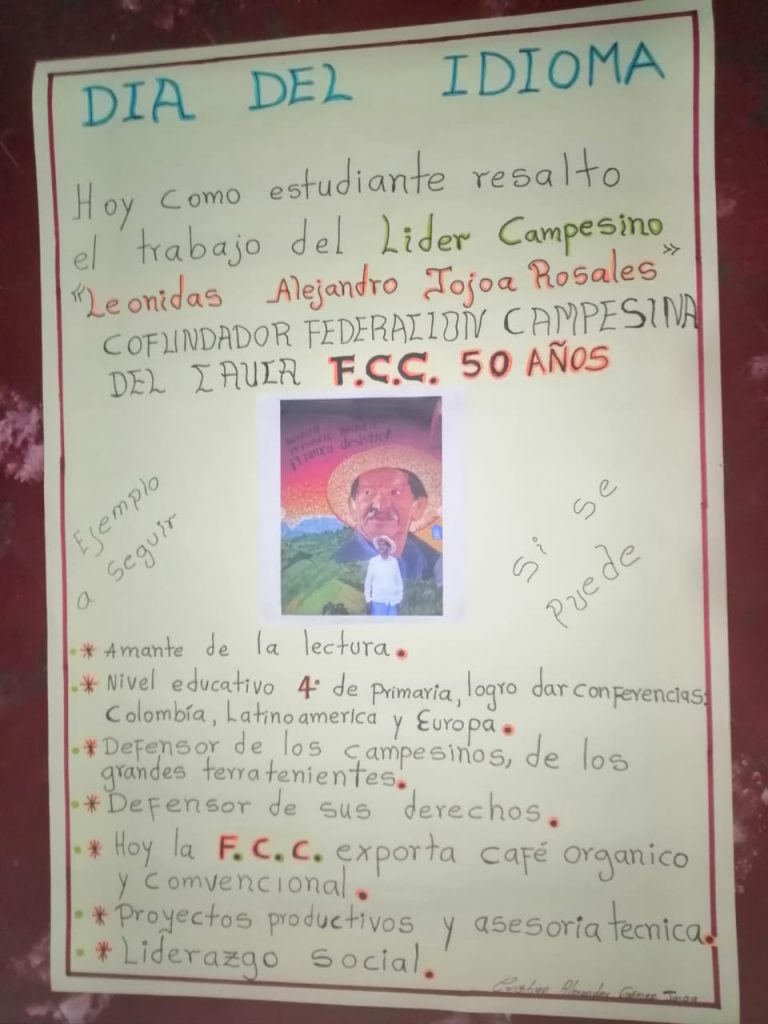 DIA DEL IDIOMA
Hoy como estudiante resalto
el trabajo del Lider Campesino
"Leonidas Alejandro Jojoa Rosales"
COFUNDADOR FEDERACION CAMPESINA
DEL CAUCA F.C.C. 50 AÑOS
¡Y nunca desistir!
Ejemplo
a seguir
Si se
puede
* Amante de la lectura.
* Nivel educativo 4° de primaria, logro dar conferencias:
Colombía, Latinoamerica y Europa.
* Defensor de los campesinos, de los
grandes terratenientes.
* Defensor de sus derechos.
* Hoy la F.C.C. exporta café organico
y comvencional.
* Proyectos productivos y asesoria tecnica.
* Liderazgo social.
Cristian Alexander Gómez Jojoa